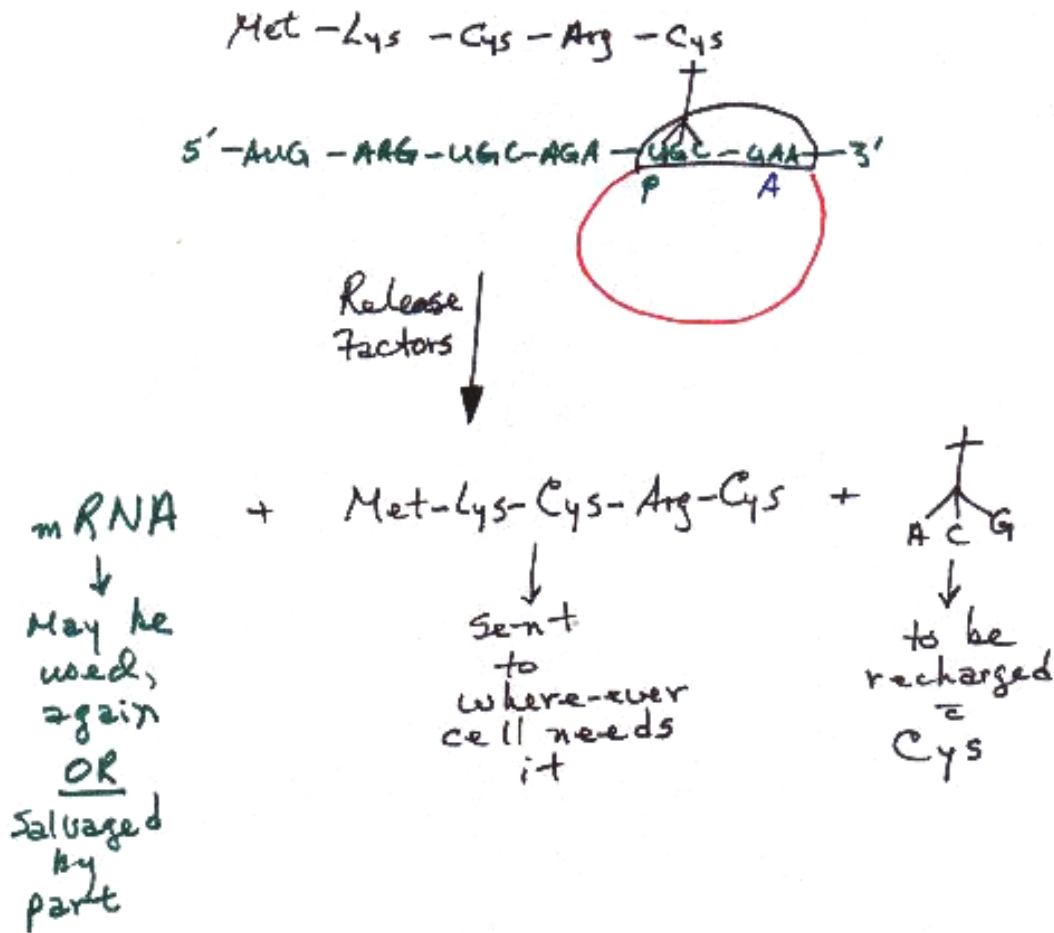 Met - Lys - Cys - Arg - Cys
5' - AUG - AAG - UGC - AGA - UGC - GAA - 3'
P A
Release
Factors
mRNA + Met - Lys - Cys - Arg - Cys + A C G
May be
used,
again
OR
Salvaged
by
part
Sent
to
where-ever
cell needs
it
to be
recharged
c̄
Cys